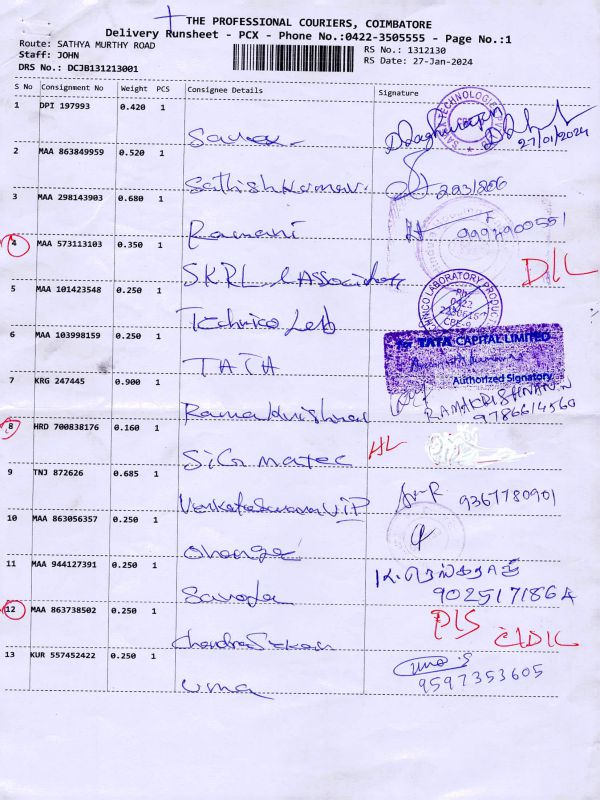 THE PROFESSIONAL COURIERS, COIMBATORE
Delivery Runsheet - PCX - Phone No.:0422-3505555 - Page No.:1
Route: SATHYA MURTHY ROAD
Staff: JOHN
DRS No.: DCJB131213001
RS No.: 1312130
RS Date: 27-Jan-2024
S No Consignment No Weight PCS Consignee Details Signature
1 DPI 197993 0.420 1
27/01/2024
2 MAA 863849959 0.520 1
Sathishkumar.
3 MAA 298143903 0.680 1
Ramani
4 MAA 573113103 0.350 1
S.K.R.L & Associates
D/L
5 MAA 101423548 0.250 1
Technico Lab
6 MAA 103998159 0.250 1
TATA
For TATA CAPITAL LIMITED
Authorized Signatory
7 KRG 247445 0.900 1
Ramakrishnan
RAMAKRISHNAN.N
9786614560
8 HRD 700838176 0.160 1
SiGmatec
HL
9 TNJ 872626 0.685 1
Venkateswaran V.P
9367780901
10 MAA 863056357 0.250 1
Orange
11 MAA 944127391 0.250 1
Saroja
9025171864
12 MAA 863738502 0.250 1
Chandrasekar
P/S
13 KUR 557452422 0.250 1
Uma
9597353605